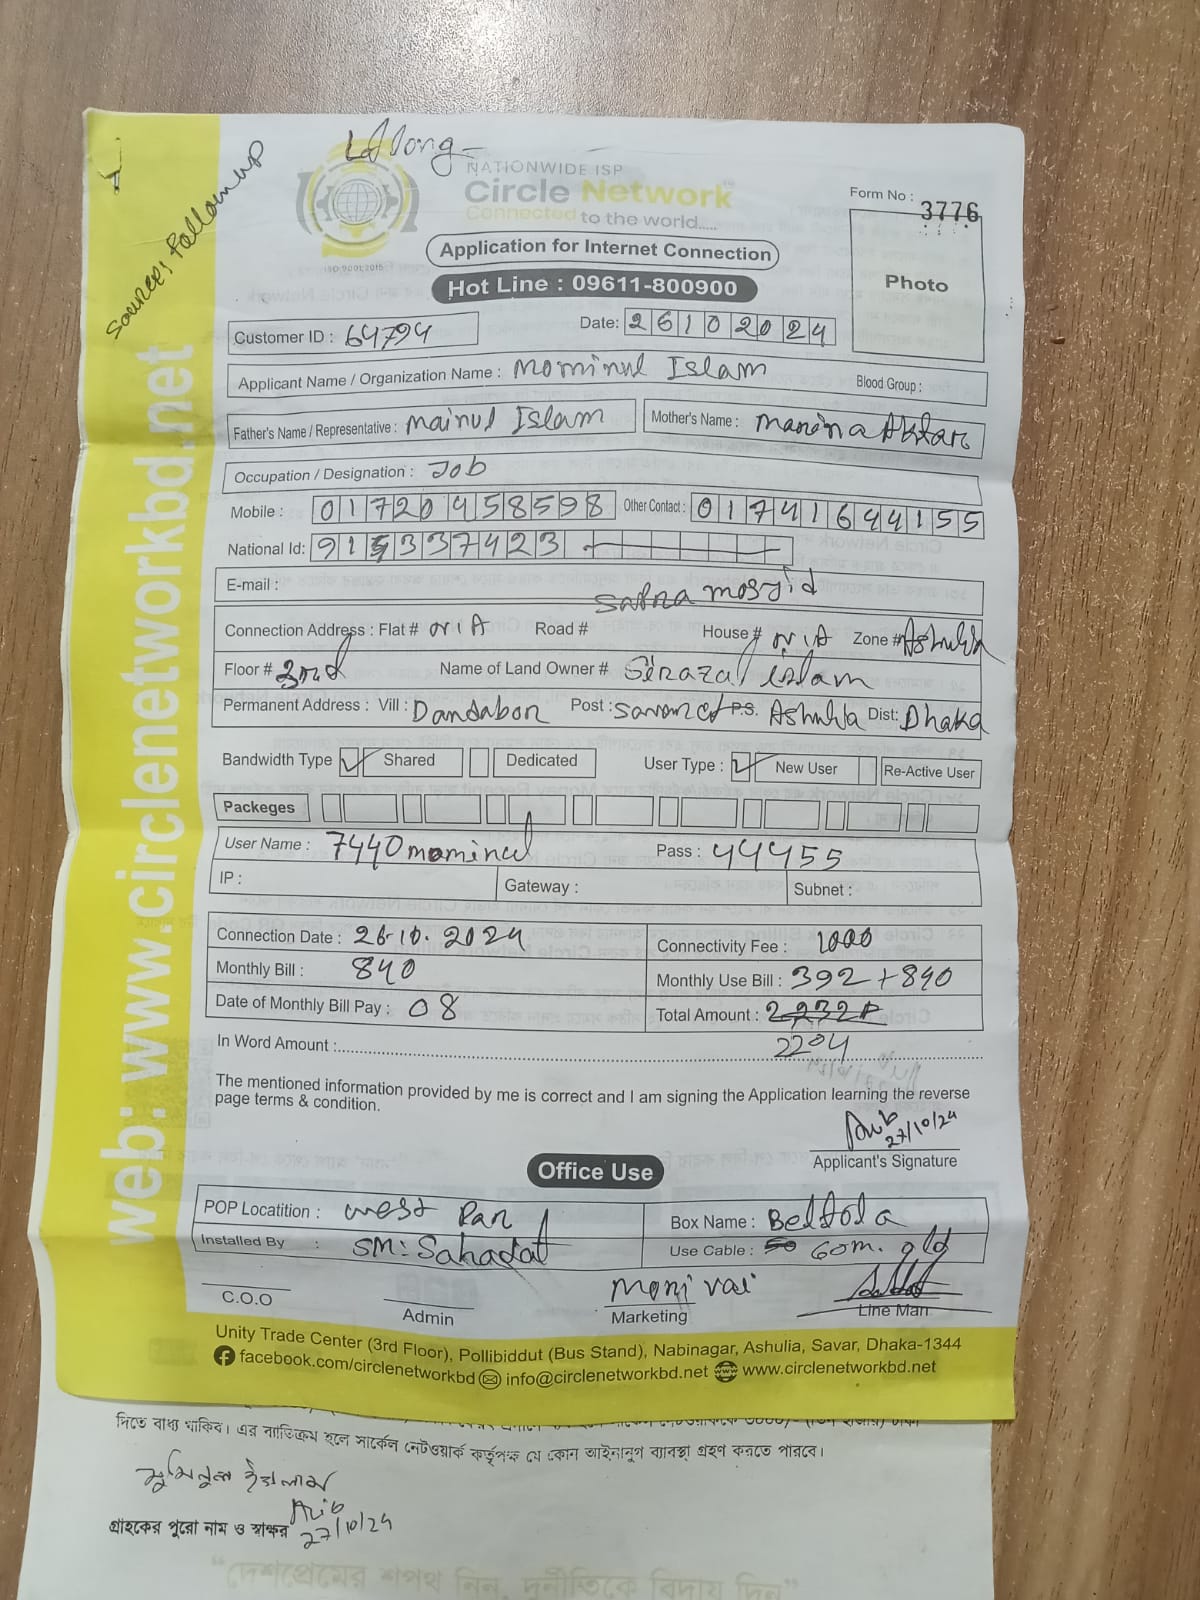 Source: Followup
NATIONWIDE ISP
Circle Network
Connected to the world.....
ISO 9001:2015
Form No : 3776
Photo
Application for Internet Connection
Hot Line : 09611-800900
Customer ID : 64794
Date: 26102024
Applicant Name / Organization Name : Mominul Islam Blood Group :
Father's Name / Representative : Mainul Islam Mother's Name : Marina Aktar
Occupation / Designation : Job
Mobile : 01720458598 Other Contact : 01741644155
National Id: 915337423
E-mail :
Safna Mosjid
Connection Address : Flat # N/A Road # House # N/A Zone # Ashulia
Floor # 3rd Name of Land Owner # Sirazal islam
Permanent Address : Vill : Dandabor Post : P.S. Ashulia Dist: Dhaka
Bandwidth Type Shared Dedicated User Type : New User Re-Active User
Packeges
User Name : 7440mominul Pass : 44455
IP : Gateway : Subnet :
Connection Date : 26-10.2024 Connectivity Fee : 1000
Monthly Bill : 840 Monthly Use Bill : 392+840
Date of Monthly Bill Pay : 08 Total Amount : 2232
In Word Amount : 2204
The mentioned information provided by me is correct and I am signing the Application learning the reverse
page terms & condition.
27/10/24
Applicant's Signature
Office Use
POP Locatition : west Par Box Name : Beltola
Installed By : SM: Sahadat Use Cable : 50 60m. old
C.O.O Admin Moni vai
Marketing Line Man
Unity Trade Center (3rd Floor), Pollibiddut (Bus Stand), Nabinagar, Ashulia, Savar, Dhaka-1344
facebook.com/circlenetworkbd info@circlenetworkbd.net www.circlenetworkbd.net
web: www.circlenetworkbd.net
দিতে বাধ্য থাকিব। এর ব্যতিক্রম হলে সার্কেল নেটওয়ার্ক কর্তৃপক্ষ যে কোন আইনানুগ ব্যাবস্থা গ্রহণ করতে পারবে।
মুমিনুল ইসলাম
গ্রাহকের পুরো নাম ও স্বাক্ষর 27/10/24
“দেশপ্রেমের শপথ নিন, দুর্নীতিকে বিদায় দিন”